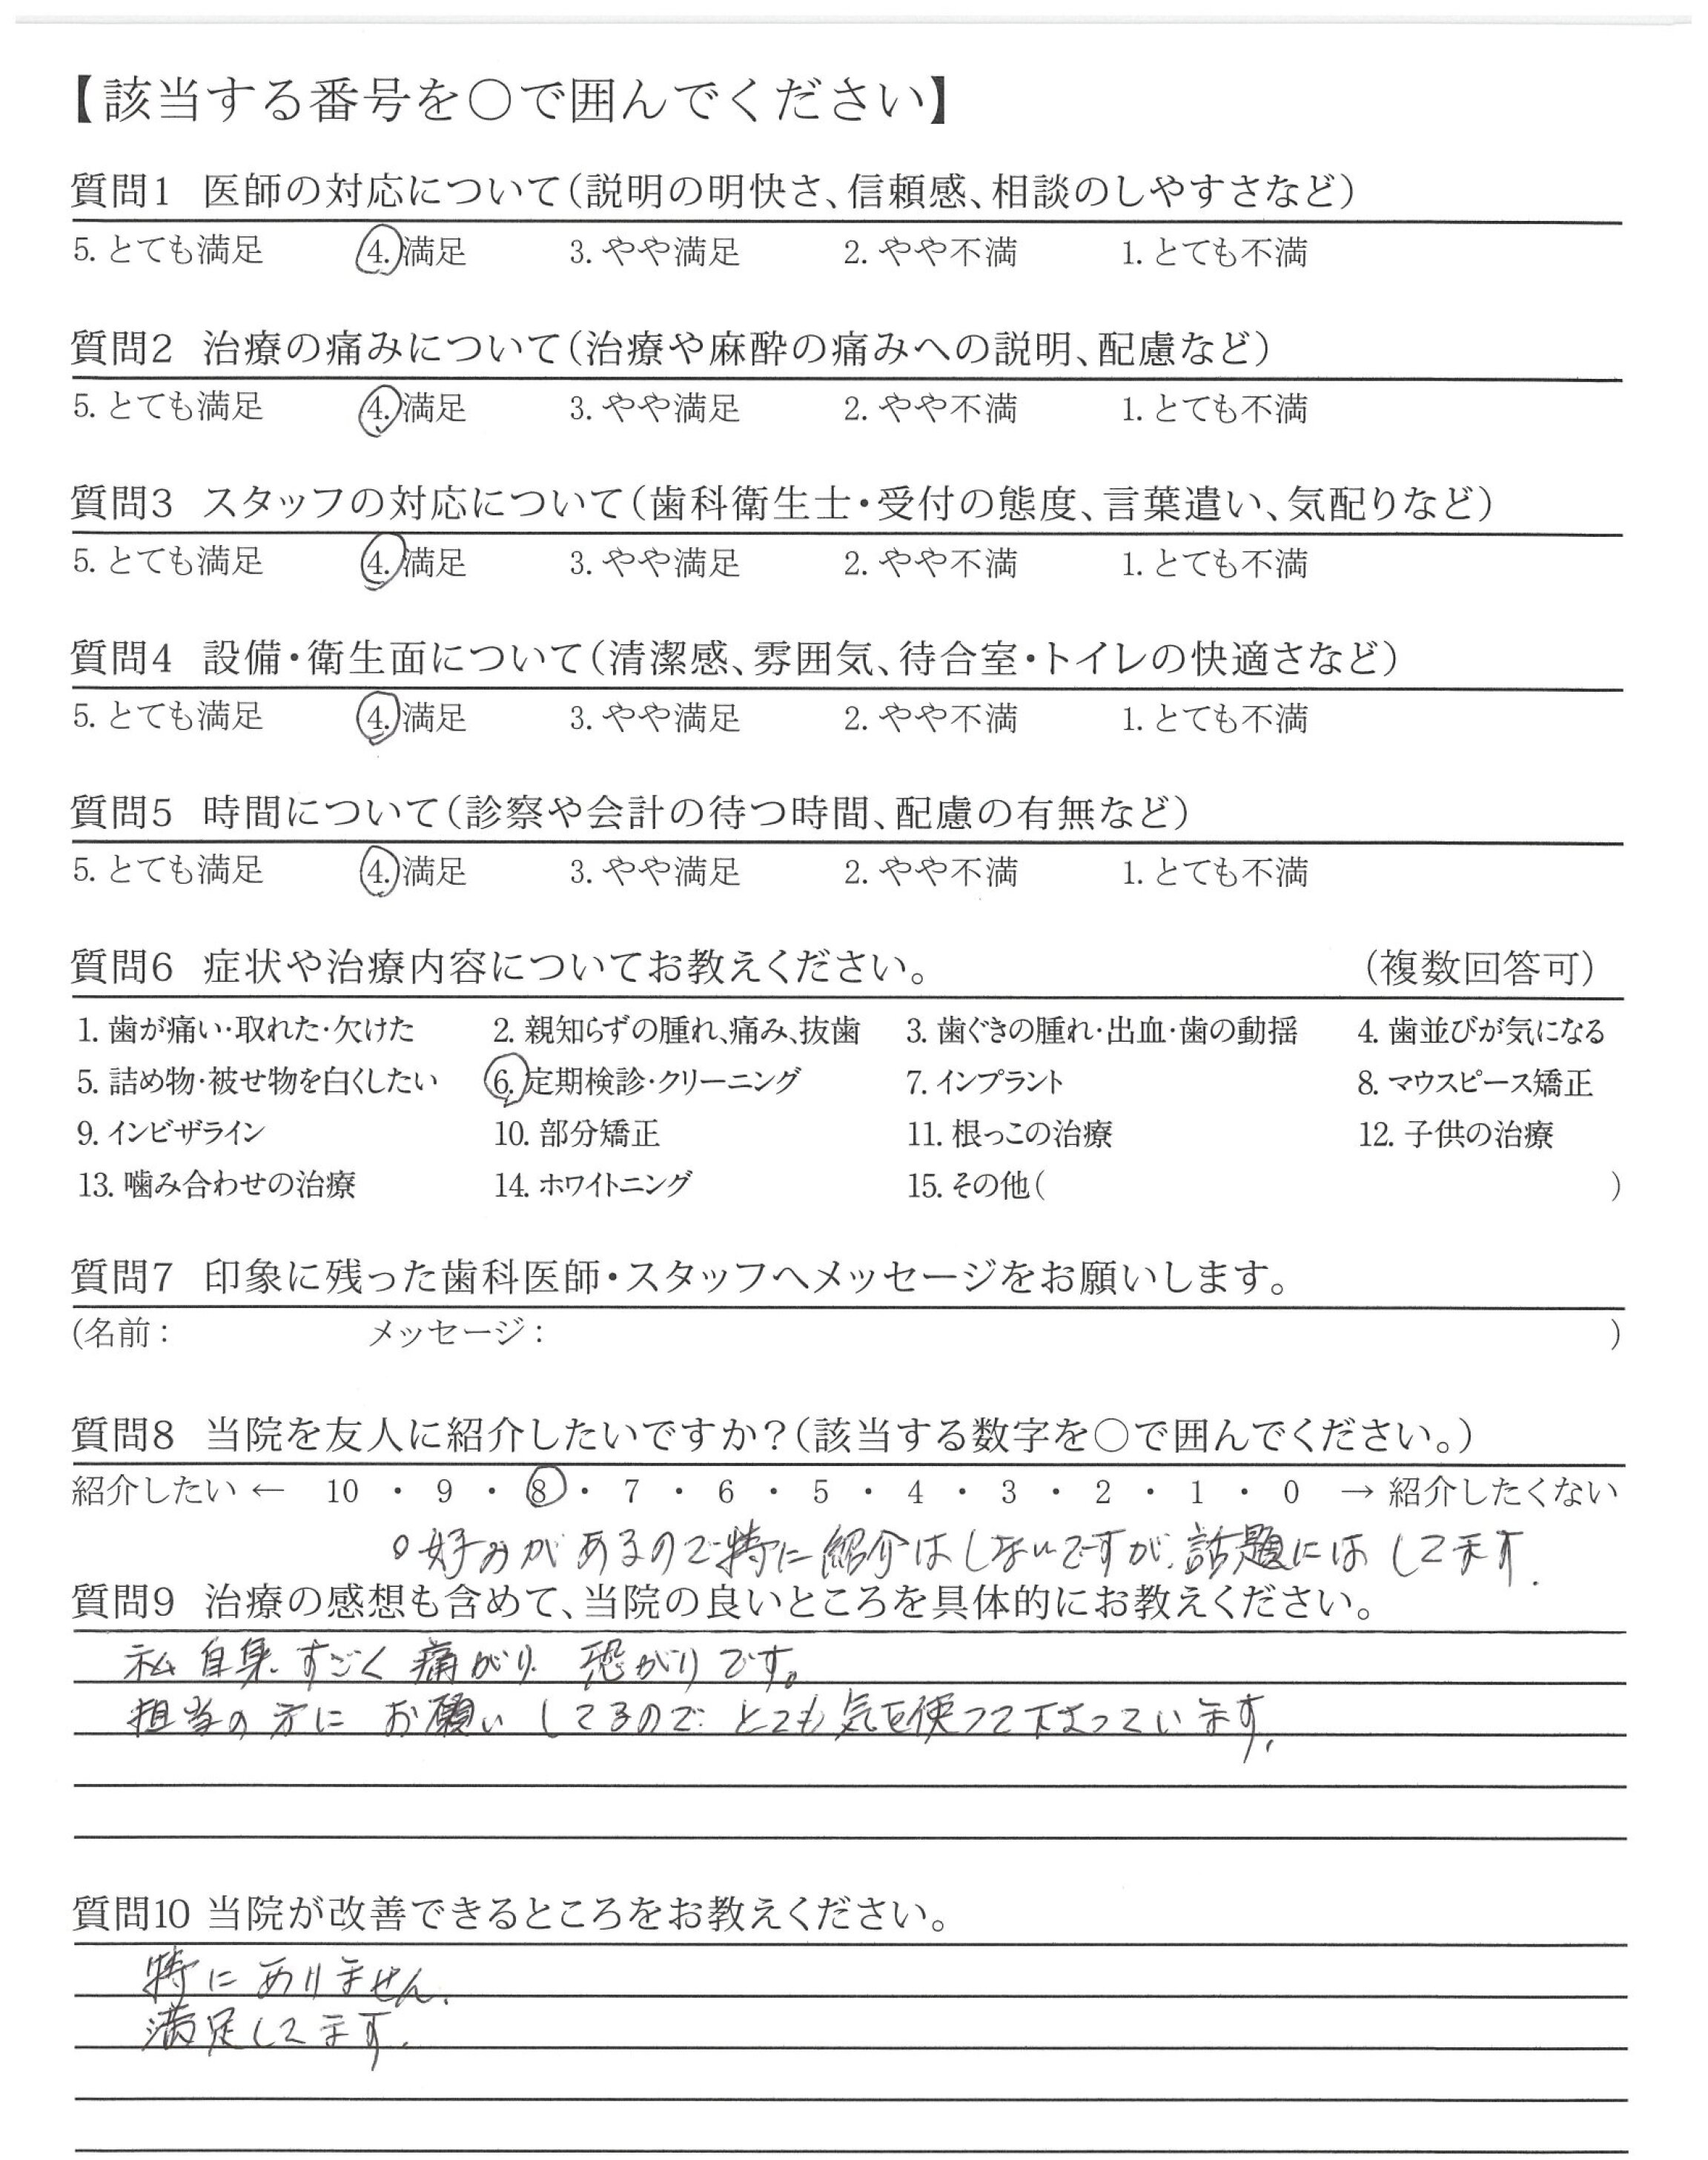 【該当する番号を○で囲んでください】
質問1 医師の対応について(説明の明快さ、信頼感、相談のしやすさなど)
5. とても満足 4. 満足 3. やや満足 2. やや不満 1. とても不満
質問2 治療の痛みについて(治療や麻酔の痛みへの説明、配慮など)
5. とても満足 4. 満足 3. やや満足 2. やや不満 1. とても不満
質問3 スタッフの対応について(歯科衛生士・受付の態度、言葉遣い、気配りなど)
5. とても満足 4. 満足 3. やや満足 2. やや不満 1. とても不満
質問4 設備・衛生面について(清潔感、雰囲気、待合室・トイレの快適さなど)
5. とても満足 4. 満足 3. やや満足 2. やや不満 1. とても不満
質問5 時間について(診察や会計の待つ時間、配慮の有無など)
5. とても満足 4. 満足 3. やや満足 2. やや不満 1. とても不満
質問6 症状や治療内容についてお教えください。 (複数回答可)
1. 歯が痛い・取れた・欠けた 2. 親知らずの腫れ、痛み、抜歯 3. 歯ぐきの腫れ・出血・歯の動揺 4. 歯並びが気になる
5. 詰め物・被せ物を白くしたい 6. 定期検診・クリーニング 7. インプラント 8. マウスピース矯正
9. インビザライン 10. 部分矯正 11. 根っこの治療 12. 子供の治療
13. 噛み合わせの治療 14. ホワイトニング 15. その他( )
質問7 印象に残った歯科医師・スタッフへメッセージをお願いします。
(名前: メッセージ: )
質問8 当院を友人に紹介したいですか?(該当する数字を○で囲んでください。)
紹介したい ← 10 ・ 9 ・ 8 ・ 7 ・ 6 ・ 5 ・ 4 ・ 3 ・ 2 ・ 1 ・ 0 → 紹介したくない
○好みがあるので特に紹介はしないですが、話題にはしてます.
質問9 治療の感想も含めて、当院の良いところを具体的にお教えください。
私自身、すごく痛がり、恐がりです。
担当の方にお願いしてるので、とても気を使って下さっています.
質問10 当院が改善できるところをお教えください。
特にありません.
満足してます.